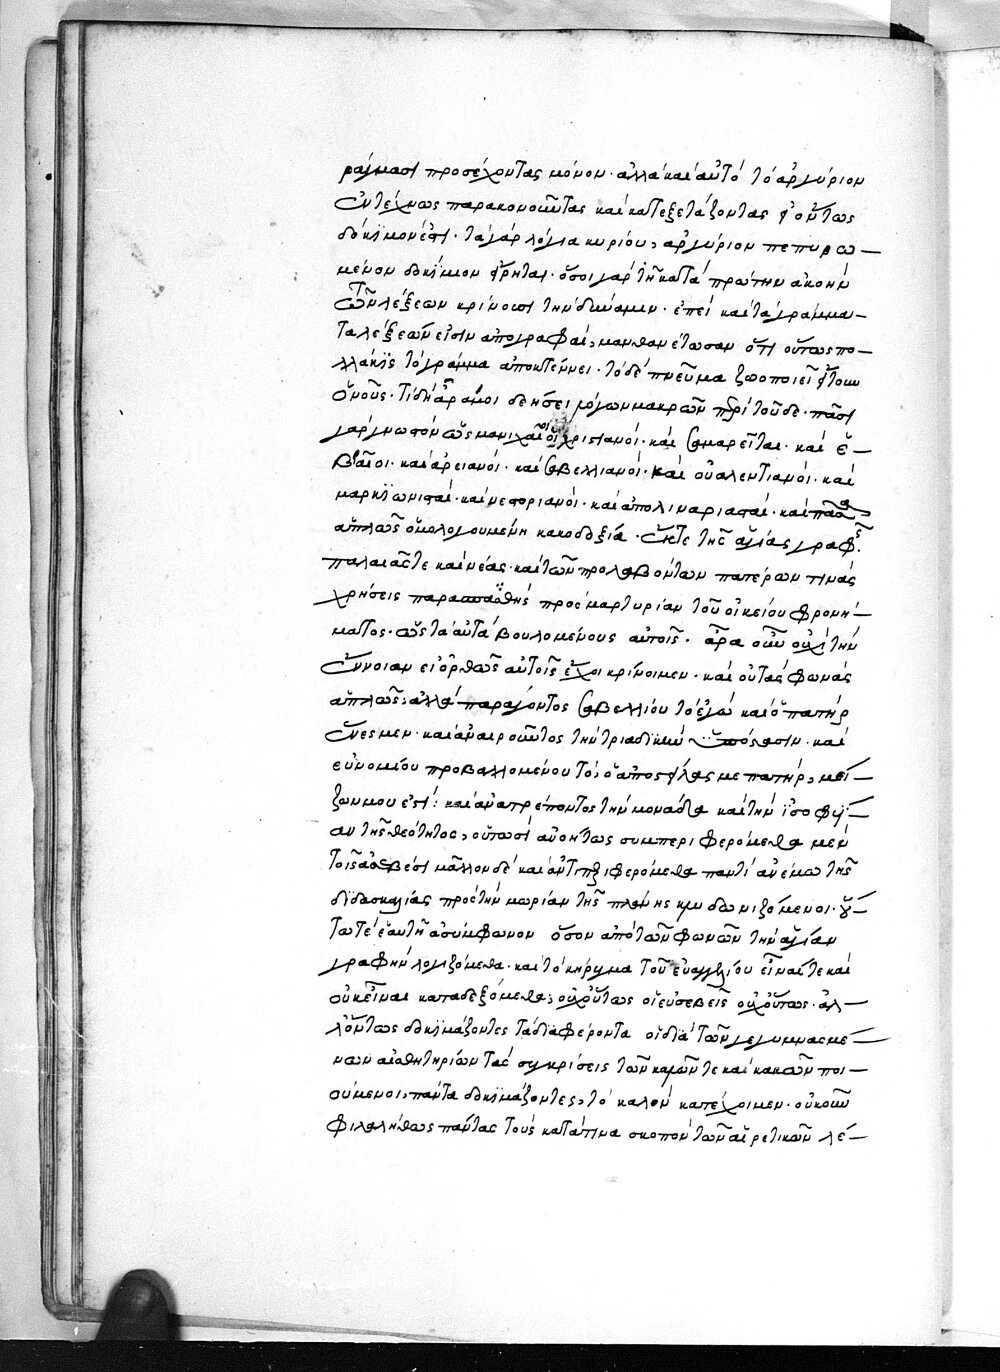 ράμμασι προσέχοντας μόνον· ἀλλὰ καὶ αὐτὸ τὸ ἀργύριον
ἐντέχνως παρακονοῦντας καὶ κατεξετάζοντας εἰ ὄντως
δόκιμον ἐστι· τὰ γὰρ λόγια κυρίου, ἀργύριον πεπυρω-
μένον δοκίμιον εἴρηται· ὅσοι γὰρ τῇ κατὰ πρώτην ἀκοὴν
τῶν λέξεων κρίνουσι τὴν δύναμιν· ἐπεὶ καὶ τὰ γράμμα-
τα λέξεών εἰσιν ἀπογραφαὶ, μανθανέτωσαν ὅτι οὕτως πο-
λλάκις τὸ γράμμα ἀποκτέννει· τὸ δὲ πνεῦμα ζωοποιεῖ ἤτοι
ὁ νοῦς· τί δὴ ἄρα μοι δεήσει λόγων μακρῶν περὶ τοῦδε· πᾶσι
γὰρ γνωστὸν ὡς μανιχαῖοι οἱ χριστιανοί· καὶ σαμαρεῖται· καὶ ἑ-
βραῖοι· καὶ ἀρειανοί· καὶ σαβελλιανοί· καὶ οὐαλεντιανοί· καὶ
μαρκιωνισταί· καὶ νεστοριανοί· καὶ ἀπολιναριασταί· καὶ πᾶσα
ἁπλῶς ὁμολογουμένη κακοδοξία· ἔκ τε τῆς ἁγίας γραφῆς
παλαιᾶς τε καὶ νέας· καὶ τῶν προλαβόντων πατέρων τινὰς
χρήσεις πρὸς μαρτυρίαν τοῦ οἰκείου φρονή-
ματος· ὡς τὰ αὐτὰ βουλομένους αὐτοῖς· ἆρα οὖν οὐχὶ τὴν
ἔννοιαν εἰ ὀρθῶς αὐτοῖς ἔχοι κρίνοιμεν· καὶ οὐ τὰς φωνὰς
ἁπλῶς; ἀλλὰ παράγοντος σαβελλίου τὸ ἐγὼ καὶ ὁ πατὴρ
ἕν ἐσμεν· καὶ ἀναιροῦντος τὴν τριαδικὴν ὑπόστασιν· καὶ
εὐνομίου προβαλλομένου τό, ὁ ἀποστείλας με πατήρ, μεί-
ζων μου ἐστί: καὶ ἀνατρέποντος τὴν μονάδα καὶ τὴν ἰσοφυΐ-
αν τῆς θεότητος, οὕτωσὶ ἀνοήτως συμπεριφερόμεθα μὲν
τοῖς ἀσεβέσι μᾶλλον δὲ καὶ ἀντιπεριφερόμεθα παντὶ ἀνέμω τῆς
διδασκαλίας πρὸς τὴν μωρίαν τῆς πλάνης κλυδωνιζόμενοι·
τω τε ἑαυτῇ ἀσύμφωνον ὅσον ἀπὸ τῶν φωνῶν τὴν ἁγίαν
γραφὴν λογιζόμεθα· καὶ τὸ κήρυγμα τοῦ εὐαγγελίου εἶναί τε καὶ
οὐκ εἶναι καταδεξόμεθα; οὐχ οὕτως οἱ εὐσεβεῖς οὐχ οὕτως· ἀλ-
λ' ὄντως δοκιμάζοντες τὰ διαφέροντα οἱ διὰ τῶν γεγυμνασμέ-
νων αἰσθητηρίων τὰς συγκρίσεις τῶν καλῶν τε καὶ κακῶν ποι-
ούμενοι, πάντα δοκιμάζοντες, τὸ καλὸν κατέχοιμεν· οὐκοῦν
φιλαλήθως πάντας τοὺς κατά τινα σκοπὸν τῶν αἱρετικῶν λέ-